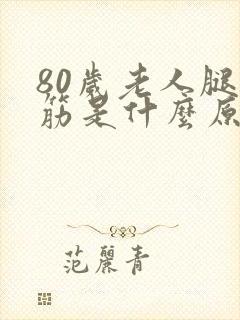 80歲老人腿
筋是什麼原
范麗青